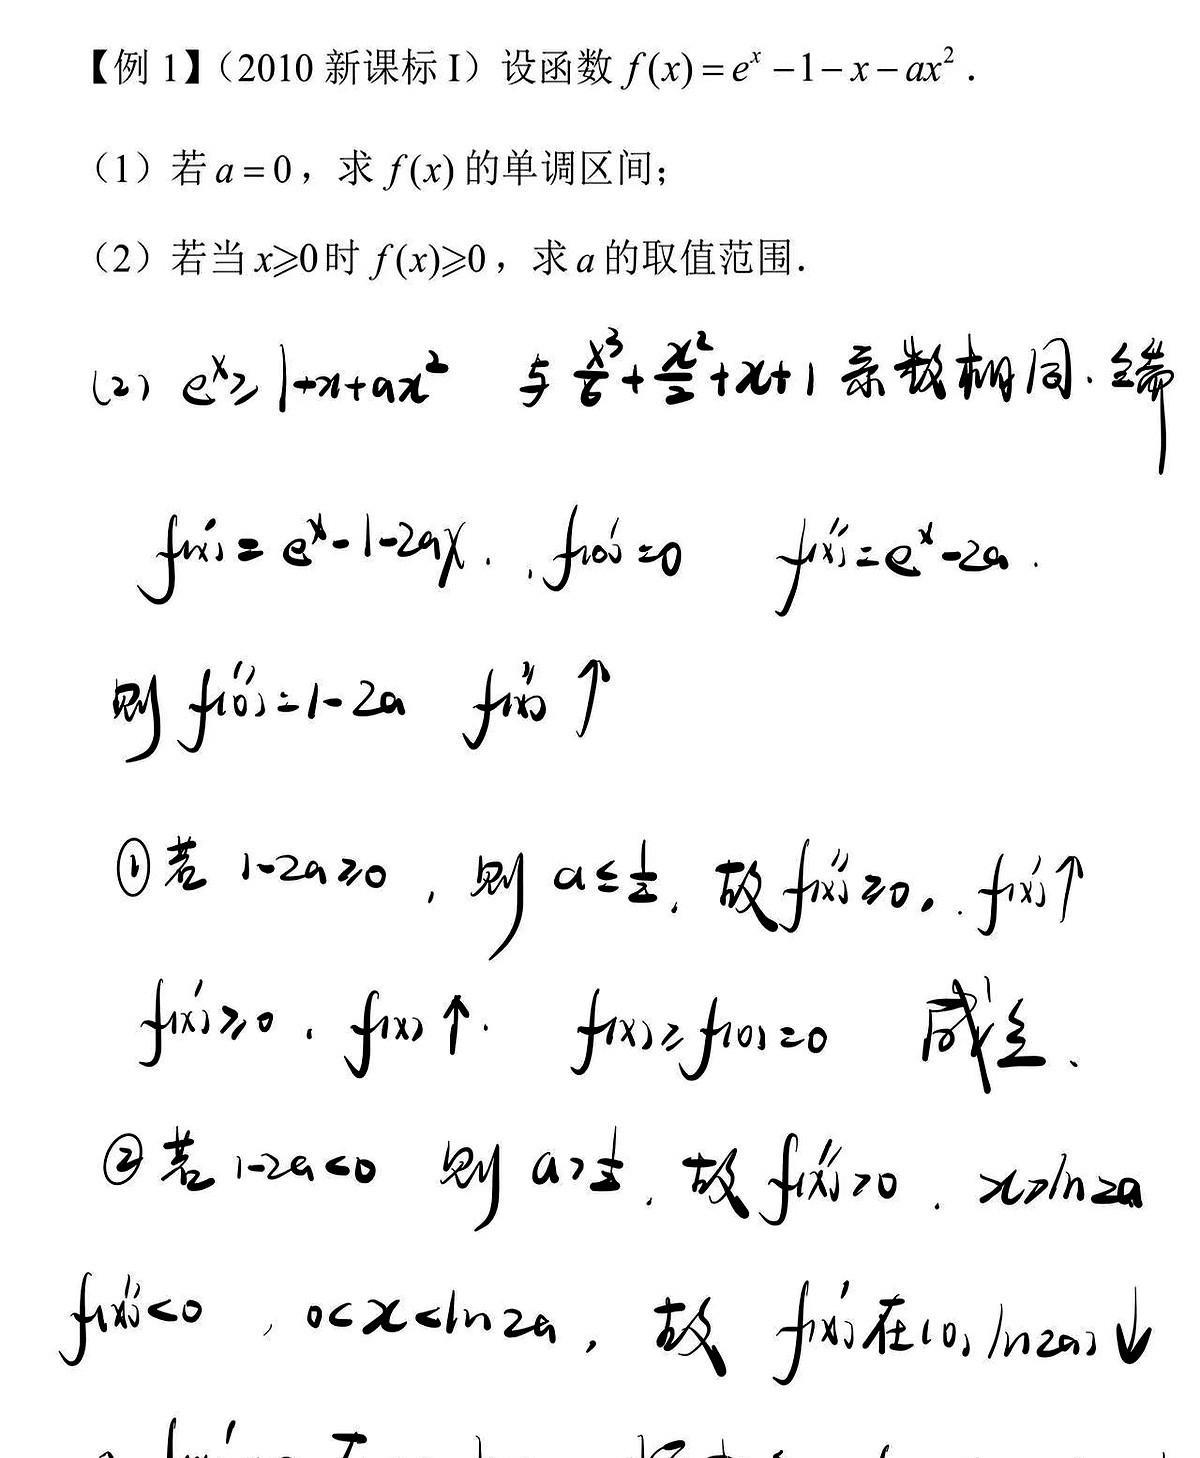 【例 1】（2010 新课标 I）设函数 f(x)=eˣ−1−x−ax².
（1）若 a=0，求 f(x) 的单调区间；
（2）若当 x⩾0 时 f(x)⩾0，求 a 的取值范围.
(2) eˣ≥1+x+ax² 与 x³/6+x²/2+x+1 系数相同.
f'(x)=eˣ-1-2ax. , f'(0)=0 f''(x)=eˣ-2a.
则 f''(0)=1-2a f''(x)↑
①若 1-2a≥0, 则 a≤1/2. 故 f''(x)≥0. f'(x)↑
f'(x)≥0. f(x)↑. f(x)≥f(0)=0 成立、
②若 1-2a<0 则 a>1/2. 故 f''(x)>0. x>ln2a
f''(x)<0, 0<x<ln2a, 故 f'(x)在(0, ln2a)↓